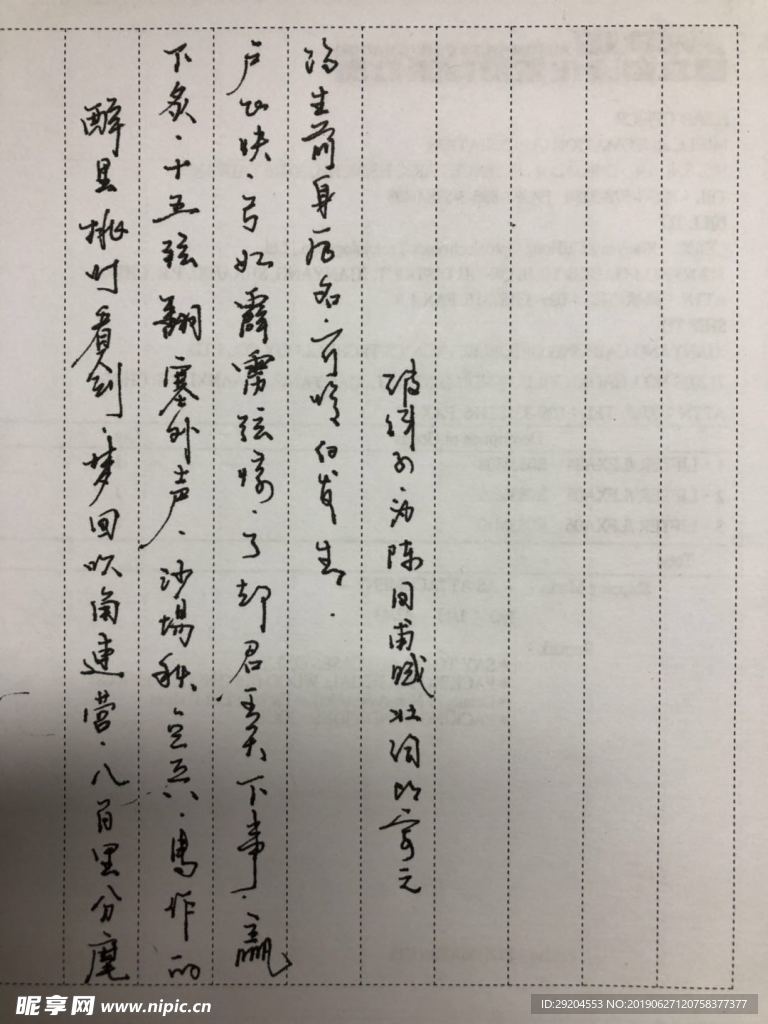 醉里挑灯看剑.梦回吹角連营.八百里分麾
下炙.十五弦翻塞外声.沙場秋点兵.馬作的
卢飞快.弓如霹雳弦惊.了却君王天下事.赢
得生前身后名.可怜白发生.
破阵子为陈同甫赋壮词以寄之
昵享网 www.nipic.cn
ID:29204553 NO:20190627120758377377